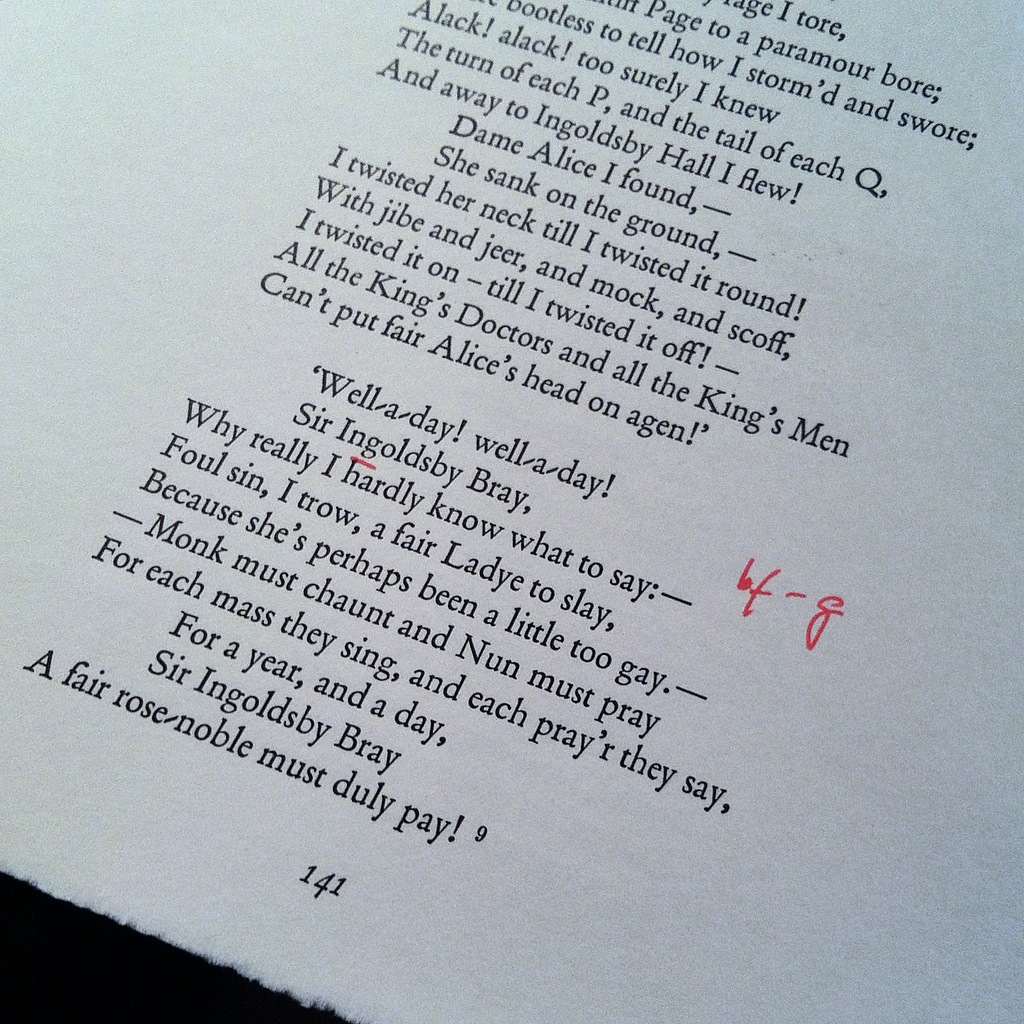 rage I tore,
Page to a paramour bore;
bootless to tell how I storm'd and swore;
Alack! alack! too surely I knew
The turn of each P, and the tail of each Q,
And away to Ingoldsby Hall I flew!
Dame Alice I found,—
She sank on the ground,—
I twisted her neck till I twisted it round!
With jibe and jeer, and mock, and scoff,
I twisted it on – till I twisted it off!—
All the King's Doctors and all the King's Men
Can't put fair Alice's head on agen!'
'Well-a-day! well-a-day!
Sir Ingoldsby Bray,
Why really I hardly know what to say:—
Foul sin, I trow, a fair Ladye to slay,
bf - g
Because she's perhaps been a little too gay.—
—Monk must chaunt and Nun must pray
For each mass they sing, and each pray'r they say,
For a year, and a day,
Sir Ingoldsby Bray
A fair rose-noble must duly pay! 9
141